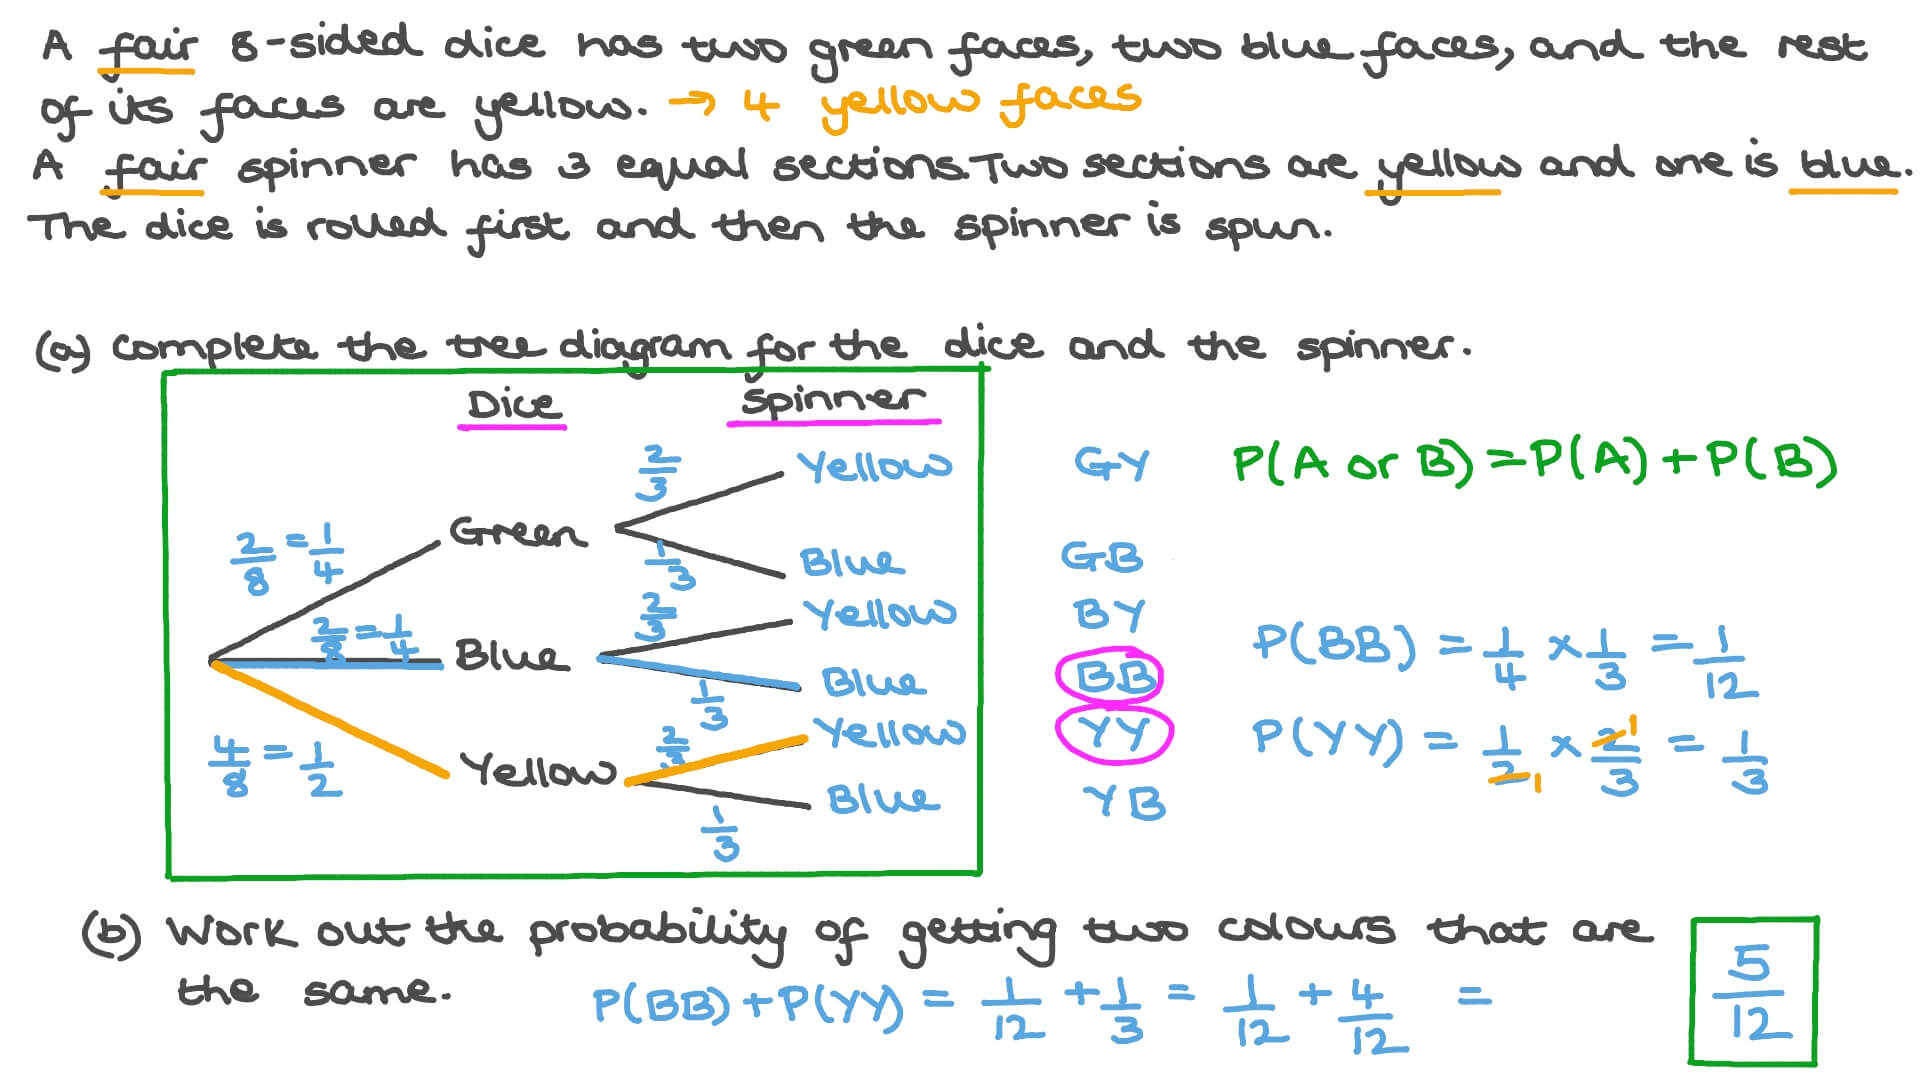 A fair 8-sided dice has two green faces, two blue faces, and the rest
of its faces are yellow. → 4 yellow faces
A fair spinner has 3 equal sections. Two sections are yellow and one is blue.
The dice is rolled first and then the spinner is spun.
(a) Complete the tree diagram for the dice and the spinner.
Dice Spinner
2/3 Yellow GY P(A or B) = P(A) + P(B)
2/8 = 1/4 Green
1/3 Blue GB
2/8 = 1/4 Blue 2/3 Yellow BY
1/3 Blue BB P(BB) = 1/4 × 1/3 = 1/12
4/8 = 1/2 Yellow 2/3 Yellow YY P(YY) = 1/2 1 × 2/3 1 = 1/3
1/3 Blue YB
(b) Work out the probability of getting two colours that are
the same. P(BB) + P(YY) = 1/12 + 1/3 = 1/12 + 4/12 = 5/12